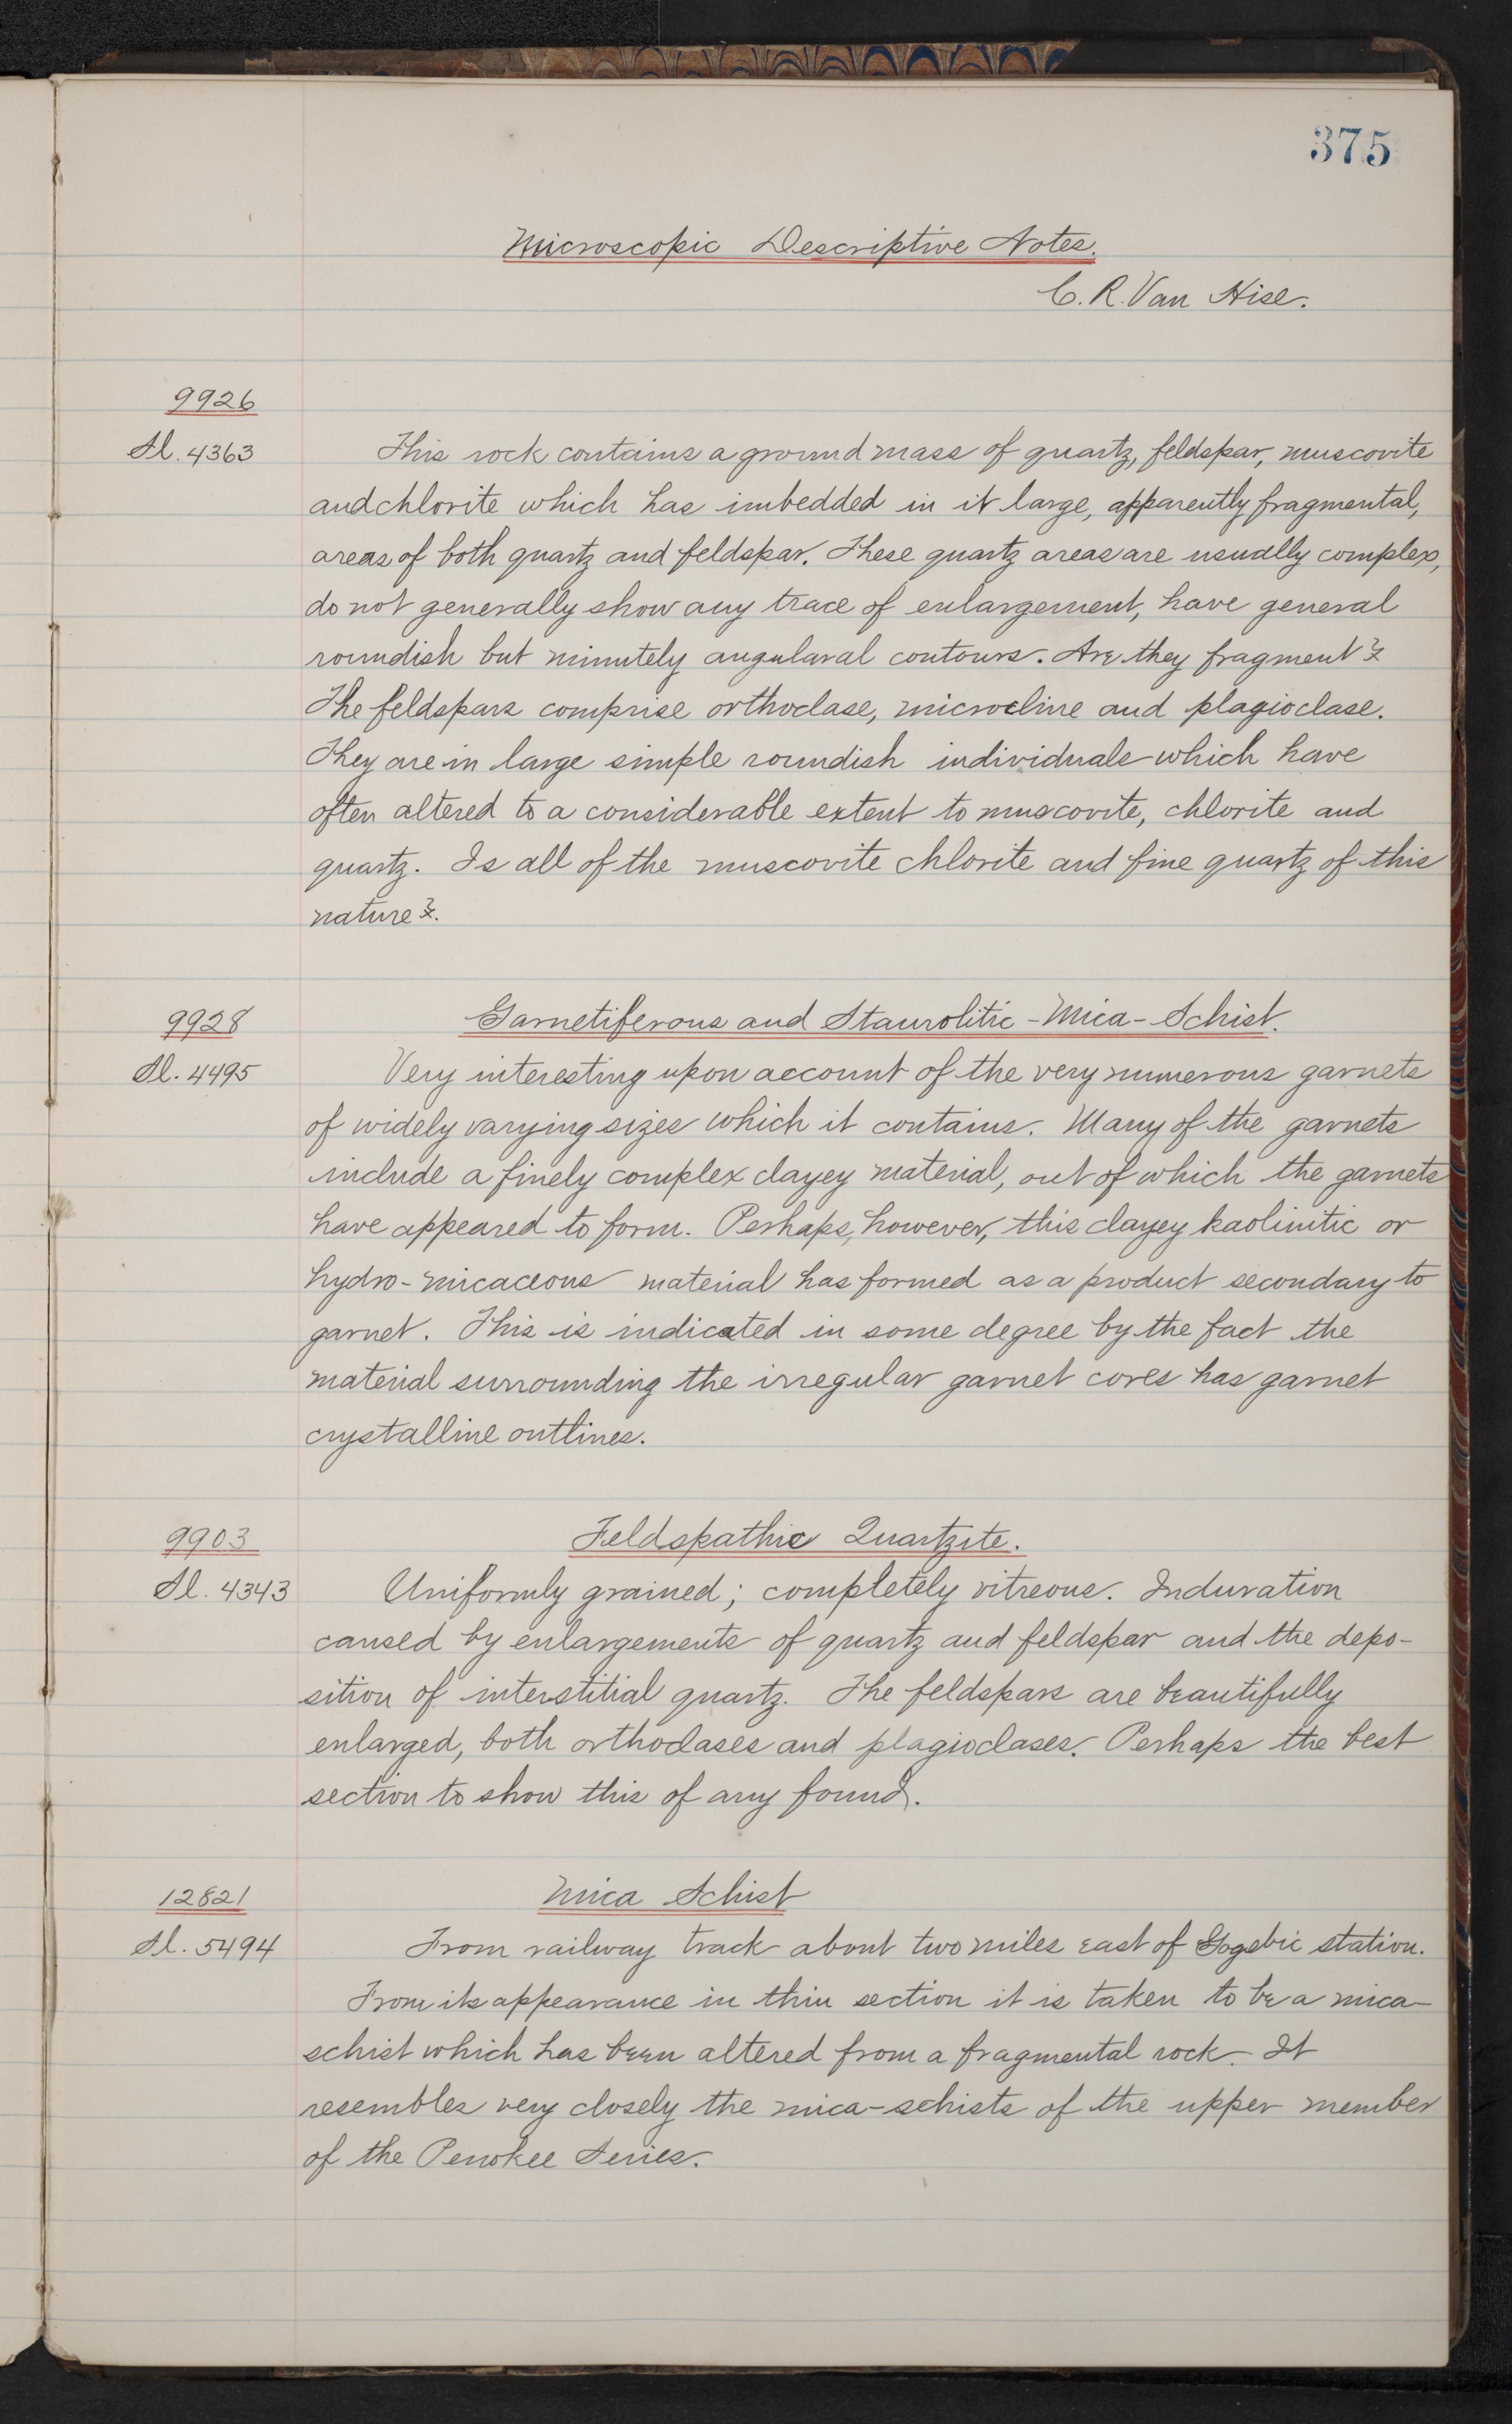 375
Microscopic Descriptive Notes.
C. R. Van Hise.
9926
Sl. 4363
This rock contains a ground mass of quartz, feldspar, muscovite
and chlorite which has imbedded in it large, apparently fragmental,
areas of both quartz and feldspar. These quartz areas are usually complex,
do not generally show any trace of enlargement, have general
roundish but minutely angularal contours. Are they fragment?
The feldspars comprise orthoclase, microcline and plagioclase.
They are in large simple roundish individuals which have
often altered to a considerable extent to muscovite, chlorite and
quartz. Is all of the muscovite chlorite and fine quartz of this
nature?.
9928
Garnetiferous and Staurolitic-Mica-Schist.
Sl. 4495
Very interesting upon account of the very numerous garnets
of widely varying sizes which it contains. Many of the garnets
include a finely complex clayey material, out of which the garnets
have appeared to form. Perhaps, however, this clayey kaolinitic or
hydro-micaceous material has formed as a product secondary to
garnet. This is indicated in some degree by the fact the
material surrounding the irregular garnet cores has garnet
crystalline outlines.
9903
Feldspathic Quartzite.
Sl. 4343
Uniformly grained; completely vitreous. Induration
caused by enlargements of quartz and feldspar and the depo-
sition of interstitial quartz. The feldspars are beautifully
enlarged, both orthoclases and plagioclases. Perhaps the best
section to show this of any found.
12821
Mica Schist
Sl. 5494
From railway track about two miles east of Gogebic station.
From its appearance in thin section it is taken to be a mica-
schist which has been altered from a fragmental rock. It
resembles very closely the mica-schists of the upper member
of the Penokee Series.